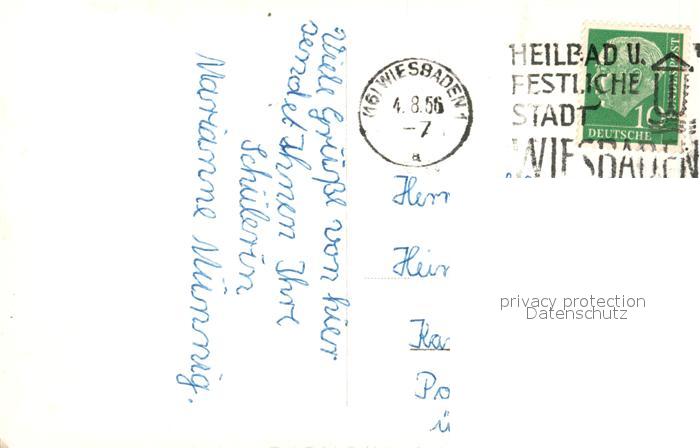 Viele Grüße von hier
sendet Ihnen Ihre
Schülerin
Marianne Münnig.
(16) WIESBADEN 1
4.8.56
-7
a
HEILBAD U.
FESTLICHE
STADT
WIESBADEN
10
DEUTSCHE
Herr
Heir
Ka
Po
ü
privacy protection
Datenschutz